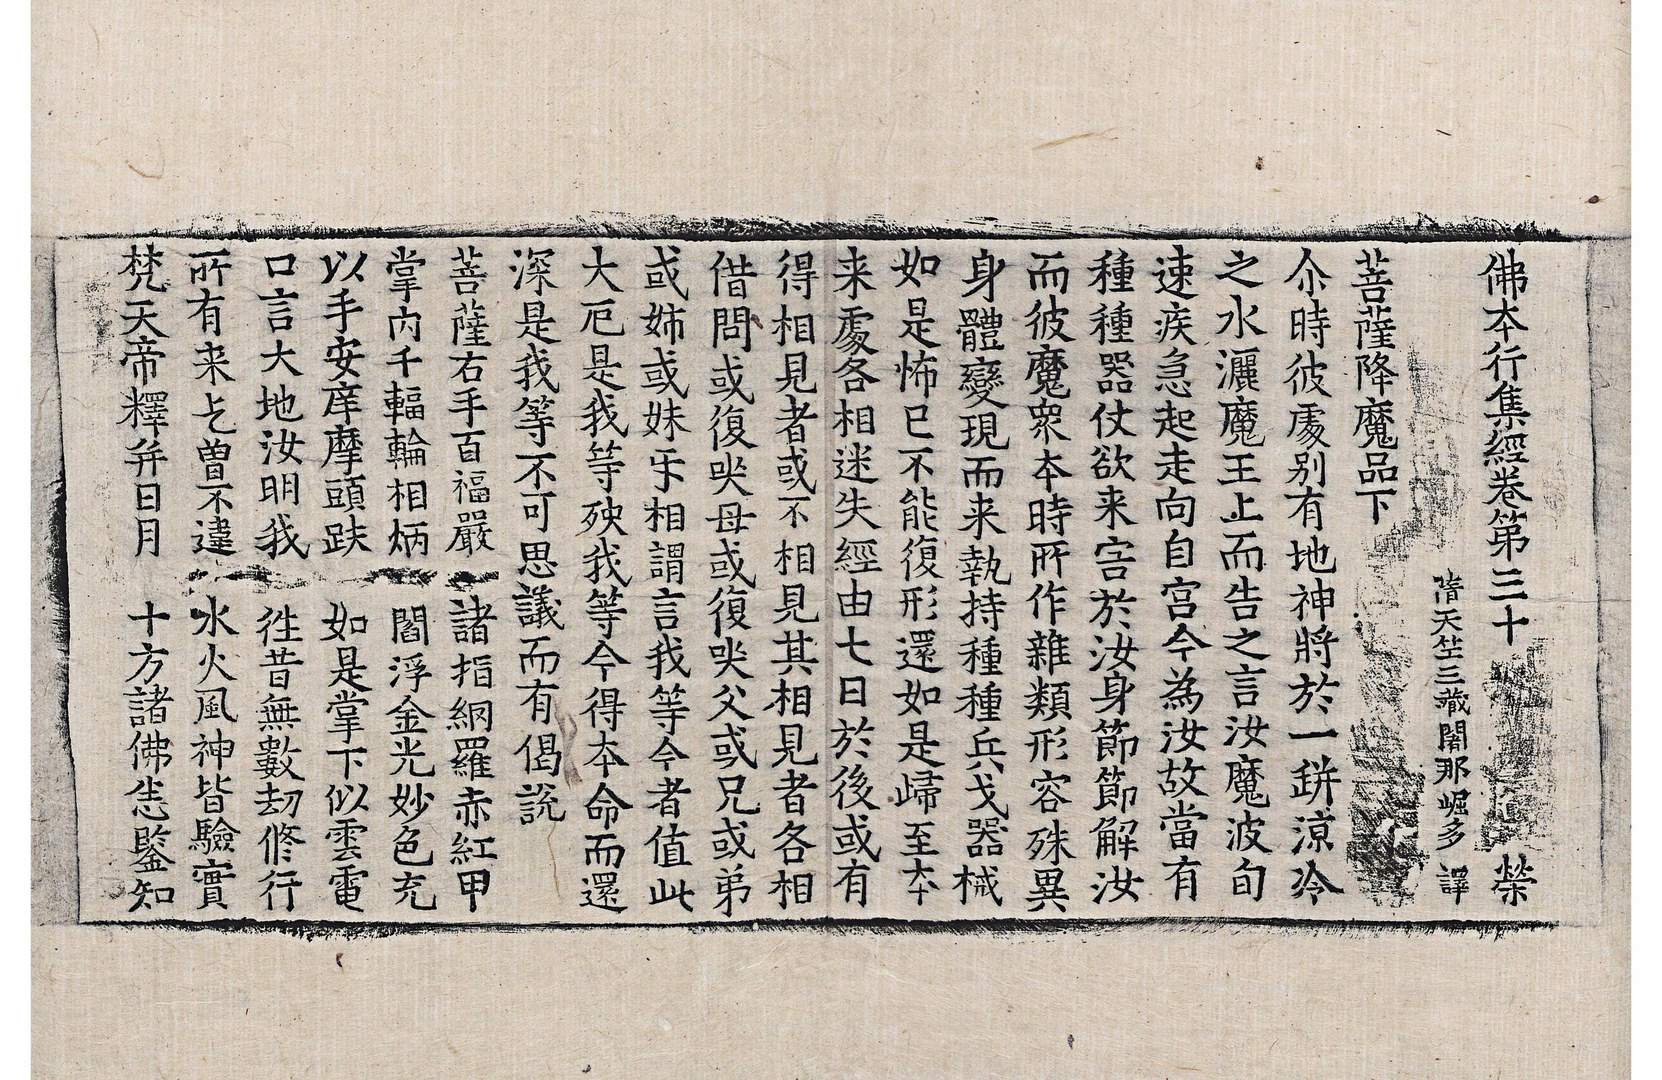 佛本行集經卷第三十　榮
隋天竺三藏闍那崛多　譯
菩薩降魔品下
尒時彼處別有地神將於一缾涼冷
之水灑魔王上而告之言汝魔波旬
速疾急起走向自宮今為汝故當有
種種器仗欲来害於汝身節節解汝
而彼魔衆本時所作雜類形容殊異
身體變現而来執持種種兵戈器械
如是怖已不能復形還如是歸至本
来處各相迷失經由七日於後或有
得相見者或不相見其相見者各相
借問或復哭母或復哭父或兄或弟
或姊或妹㸦相謂言我等今者值此
大厄是我等殃我等今得本命而還
深是我等不可思議而有偈說
菩薩右手百福嚴　諸指網羅赤紅甲
掌內千輻輪相炳　閻浮金光妙色充
以手安庠摩頭趺　如是掌下似雲電
口言大地汝明我　徃昔無數劫修行
所有来乞曾不違　水火風神皆驗實
梵天帝釋并日月　十方諸佛悉鑒知